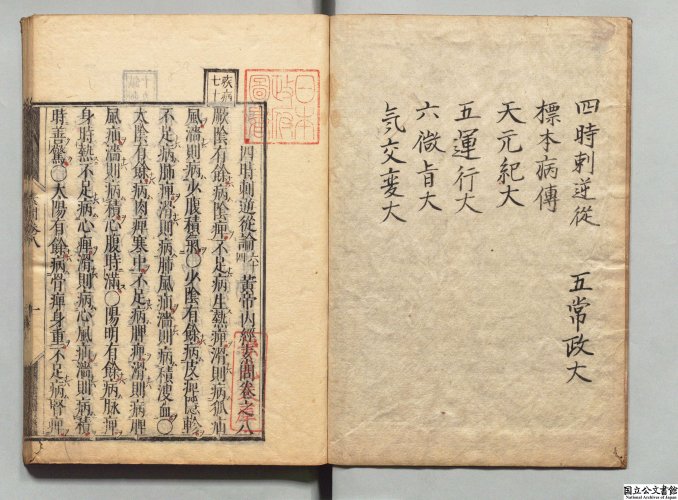 四時刺逆從 五常政大
標本病傳
天元紀大
五運行大
六微旨大
気交変大
日本
政府
圖書
疾病
七十
四時刺逆從論六十四 黃帝內經素問卷之八
厥陰有餘病陰痺不足病生熱痺滑則病狐疝
風濇則病少腹積氣○少陰有餘病皮痺隱軫
不足病肺痺滑則病肺風疝濇則病積溲血○
太陰有餘病肉痺寒中不足病脾痺滑則病脾
風疝濇則病積心腹時滿○陽明有餘病脉痺
身時熱不足病心痺滑則病心風疝濇則病積
時善驚○太陽有餘病骨痺身重不足病腎痺
国立公文書館
National Archives of Japan